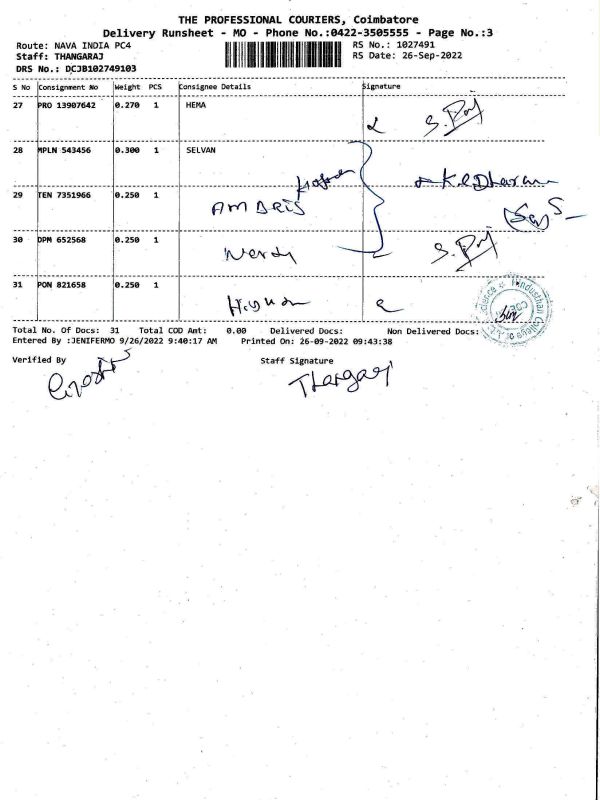 THE PROFESSIONAL COURIERS, Coimbatore
Delivery Runsheet - MO - Phone No.:0422-3505555 - Page No.:3
Route: NAVA INDIA PC4 RS No.: 1027491
Staff: THANGARAJ RS Date: 26-Sep-2022
DRS No.: DCJB102749103
S No Consignment No Weight PCS Consignee Details Signature
27 PRO 13907642 0.270 1 HEMA
28 MPLN 543456 0.300 1 SELVAN
29 TEN 7351966 0.250 1
30 DPM 652568 0.250 1
31 PON 821658 0.250 1
Total No. Of Docs: 31 Total COD Amt: 0.00 Delivered Docs: Non Delivered Docs:
Entered By :JENIFERMO 9/26/2022 9:40:17 AM Printed On: 26-09-2022 09:43:38
Verified By Staff Signature